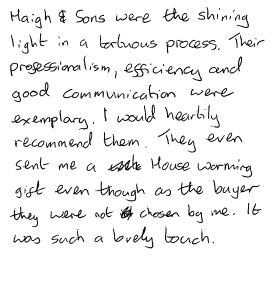 Haigh & Sons were the shining
light in a tortuous process. Their
professionalism, efficiency and
good communication were
exemplary. I would heartily
recommend them. They even
sent me a House warming
gift even though as the buyer
they were not chosen by me. It
was such a lovely touch.